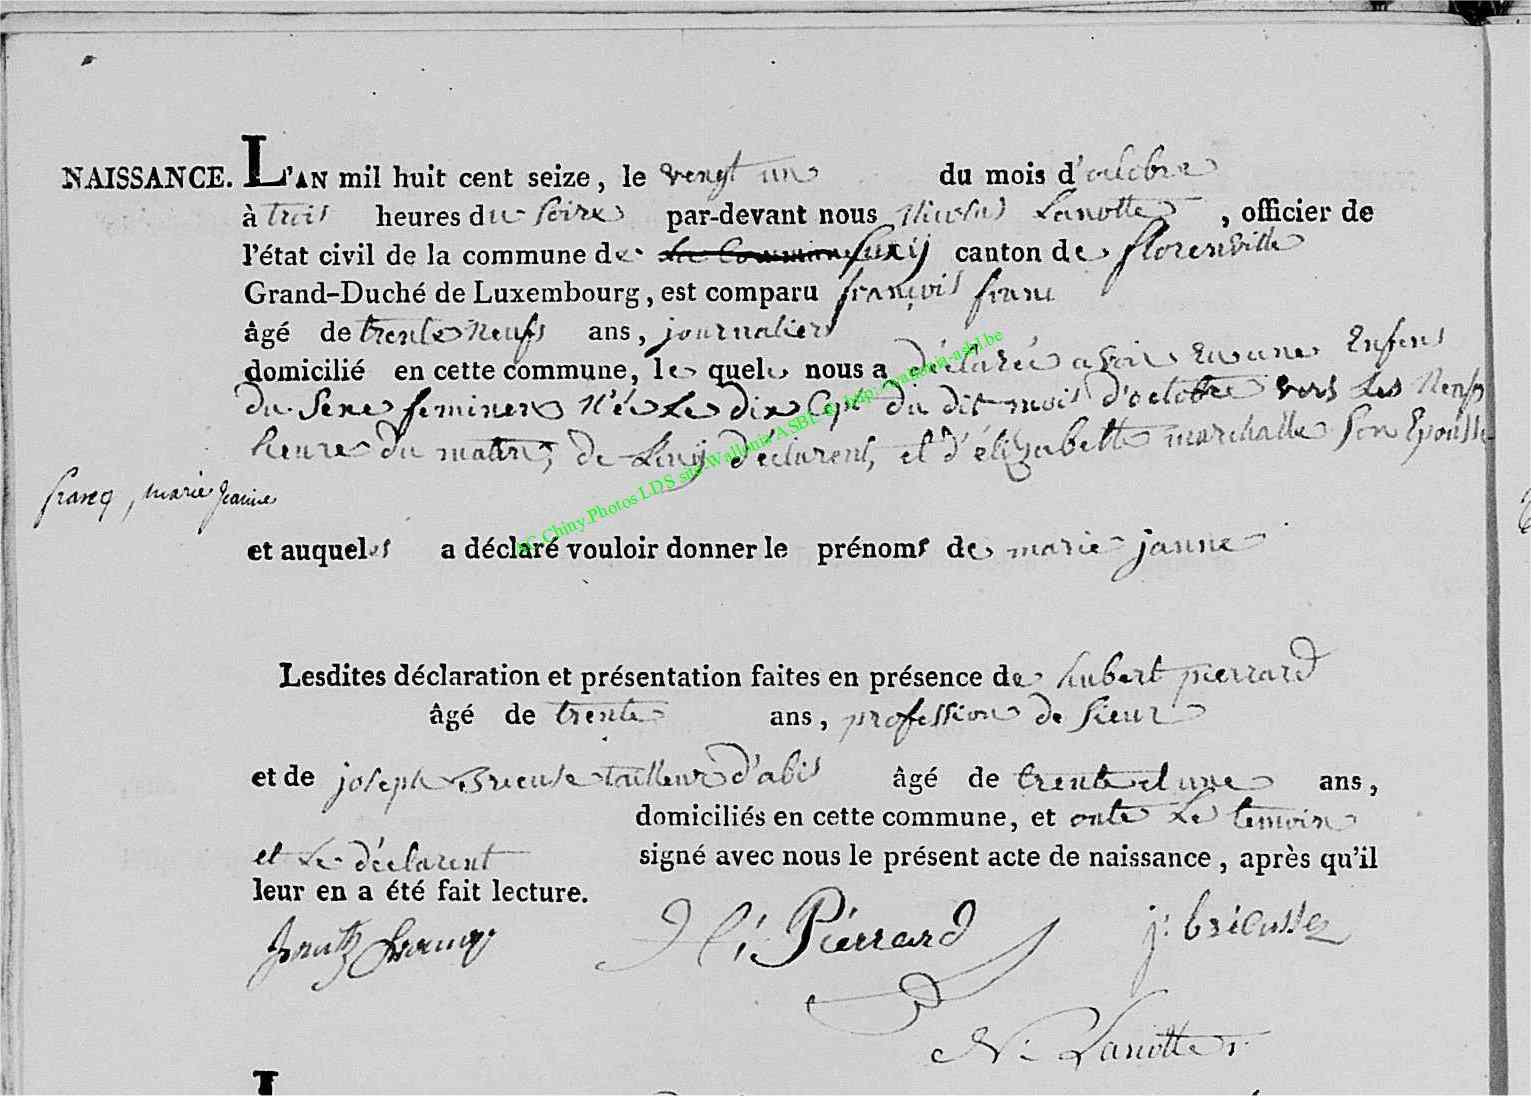 NAISSANCE. L'AN mil huit cent seize, le vengt un du mois d'octobre
à trois heures du soire par-devant nous Nicolas Lanotte, officier de
l'état civil de la commune de Suxy canton de florenville
Grand-Duché de Luxembourg, est comparu françois franc
âgé de trente neufs ans, journaliers
domicilié en cette commune, le quele nous a déclarée avoir Eu une Enfens
du Sexe feminens N'ée Le dix Sept du dit mois d'octobre vers Les Neufs
heure du matin, de Luy déclarent, et d'élizabette marchalle Son Epousse
francq, marie Jeanne
et auqueles a déclaré vouloir donner le prénoms de marie janne
Lesdites déclaration et présentation faites en présence de hubert pierrard
âgé de trente ans, profession de sieur
et de joseph Bricuse tailleur d'abis âgé de trente et une ans,
domiciliés en cette commune, et onte Le temoins
et Le déclarent signé avec nous le présent acte de naissance, après qu'il
leur en a été fait lecture.
H: Piérrard j: bricusse
N: Lanotte
EC Chiny Photos LDS site Wallonia ASBL © http://wallonia-asbl.be